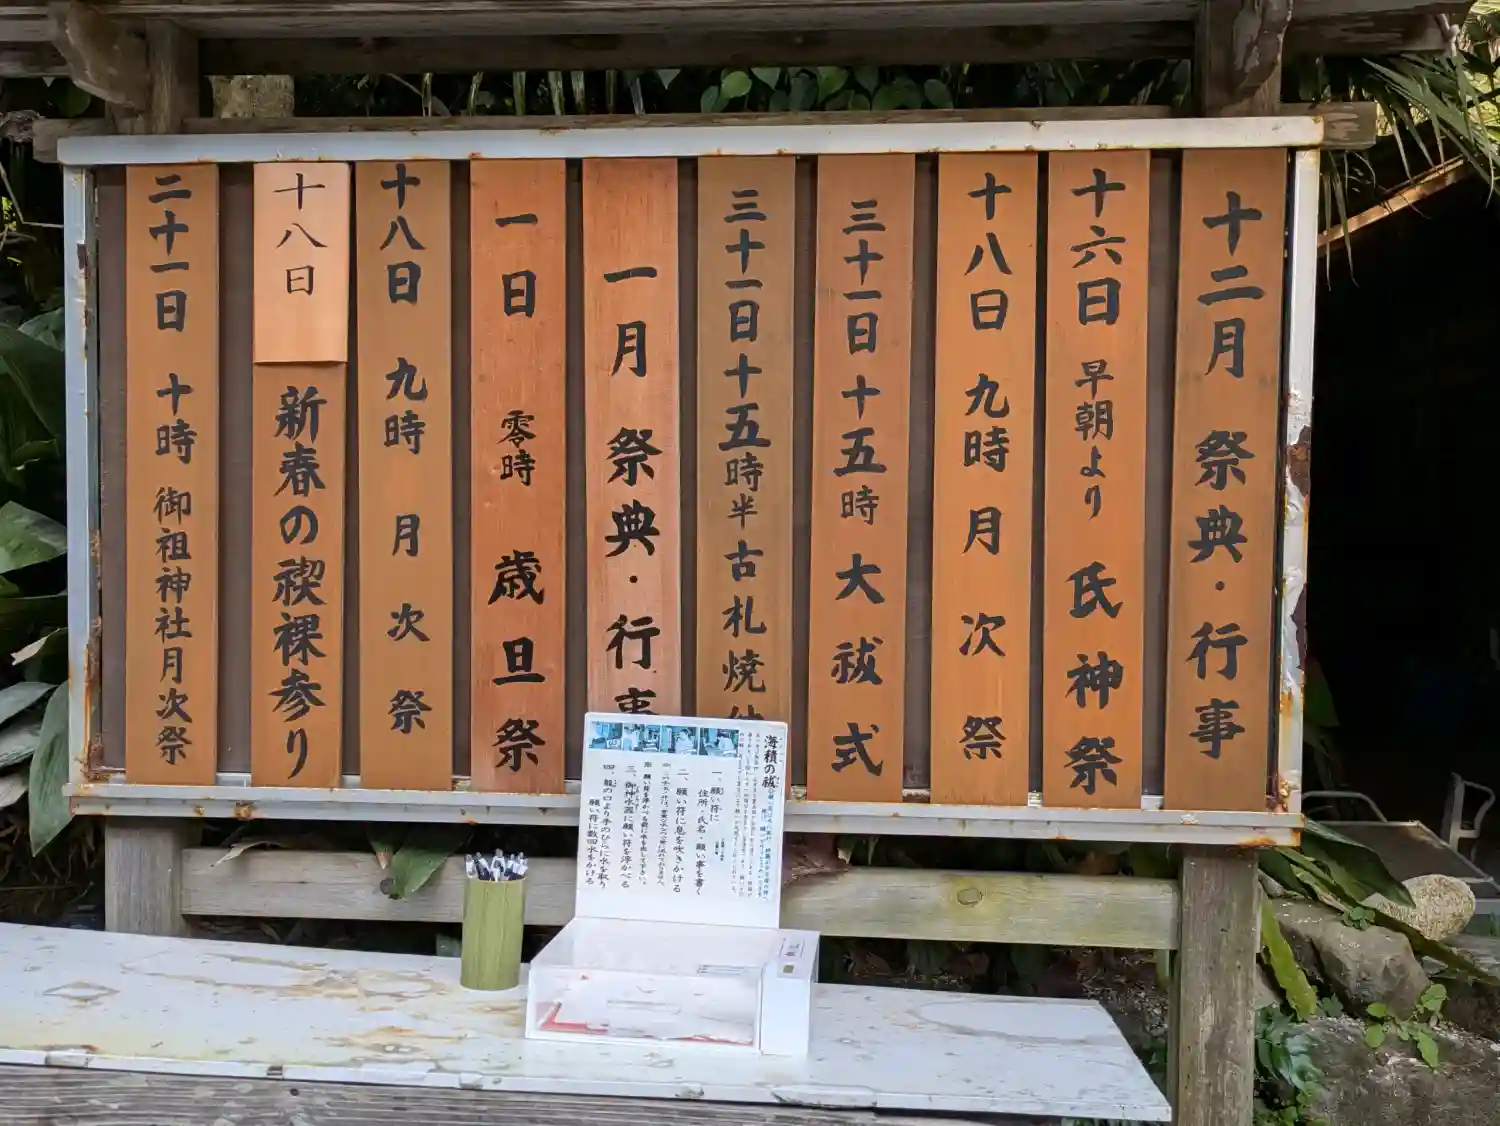 十二月 祭典・行事
十六日 早朝より 氏神祭
十八日 九時 月次祭
三十一日 十五時 大祓式
三十一日 十五時半 古札焼
一月 祭典・行事
一日 零時 歳旦祭
十八日 九時 月次祭
十八日 新春の禊裸参り
二十一日 十時 御祖神社月次祭
海積の祓
一、願い符に
住所・氏名・願い事を書く
二、願い符に息を吹きかける
三、御神水に願い符を浮かべる
四、龍の口より手のひらに水を取り
願い符に数回水をかける